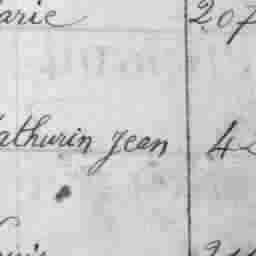 arie 207
athurin Jean 4